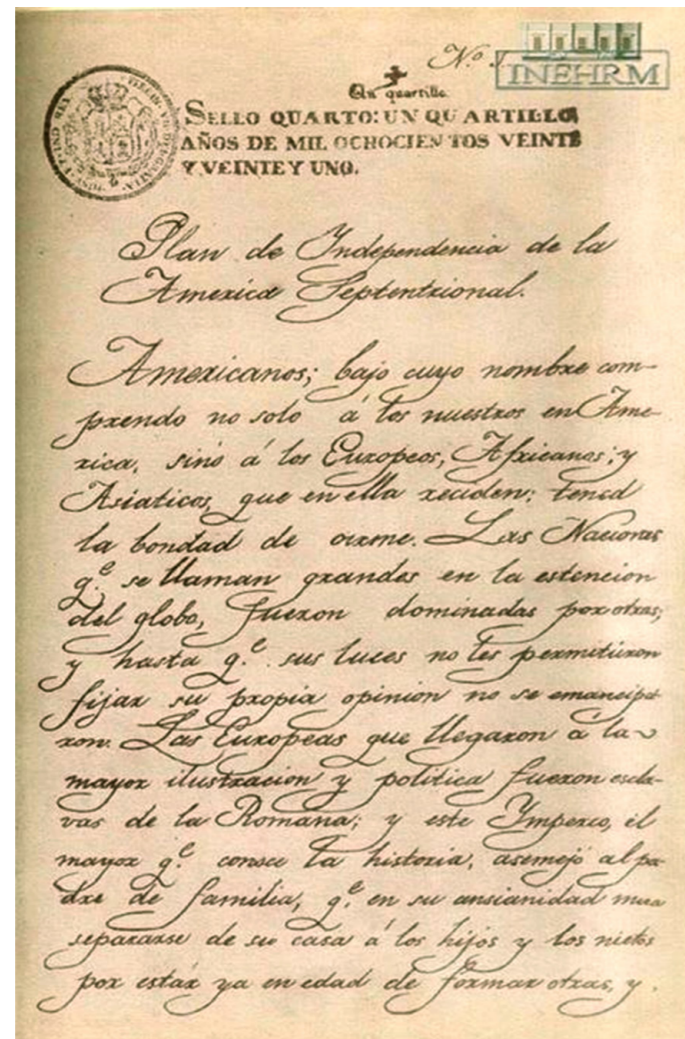 Nº 1
INEHRM
Un quartillo
SELLO QUARTO: UN QUARTILLO
AÑOS DE MIL OCHOCIENTOS VEINTE
Y VEINTE Y UNO.
Plan de Independencia de la
America Septentrional.
Americanos; bajo cuyo nombre com-
prendo no solo á los nuestros en Ame-
rica, sino á los Europeos, Africanos; y
Asiaticos, que en ella reciden: tened
la bondad de oirme. Las Naciones
q.e se llaman grandes en la estencion
del globo, fueron dominadas por otras;
y hasta q.e sus luces no les permitieron
fijar su propia opinion no se emancipa
ron. Las Europeas que llegaron á la
mayor ilustracion y politica fueron escla-
vas de la Romana; y este Imperio, el
mayor q.e conoce la historia, asemejó al pa-
dre de familia, q.e en su ansianidad mira
separarse de su casa á los hijos y los nietos
por estár ya en edad de formar otras, y